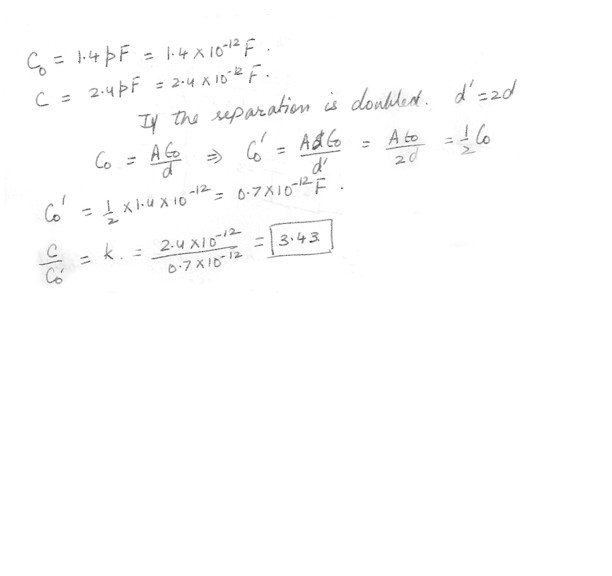 C₀ = 1.4 pF = 1.4 × 10⁻¹² F .
C = 2.4 pF = 2.4 × 10⁻¹² F .
If the separation is doubled. d' = 2d
C₀ = Aϵ₀/d ⇒ C₀' = Aϵ₀/d' = Aϵ₀/2d = 1/2 C₀
C₀' = 1/2 × 1.4 × 10⁻¹² = 0.7 × 10⁻¹² F .
C/C₀' = k . = 2.4 × 10⁻¹² / 0.7 × 10⁻¹² = 3.43